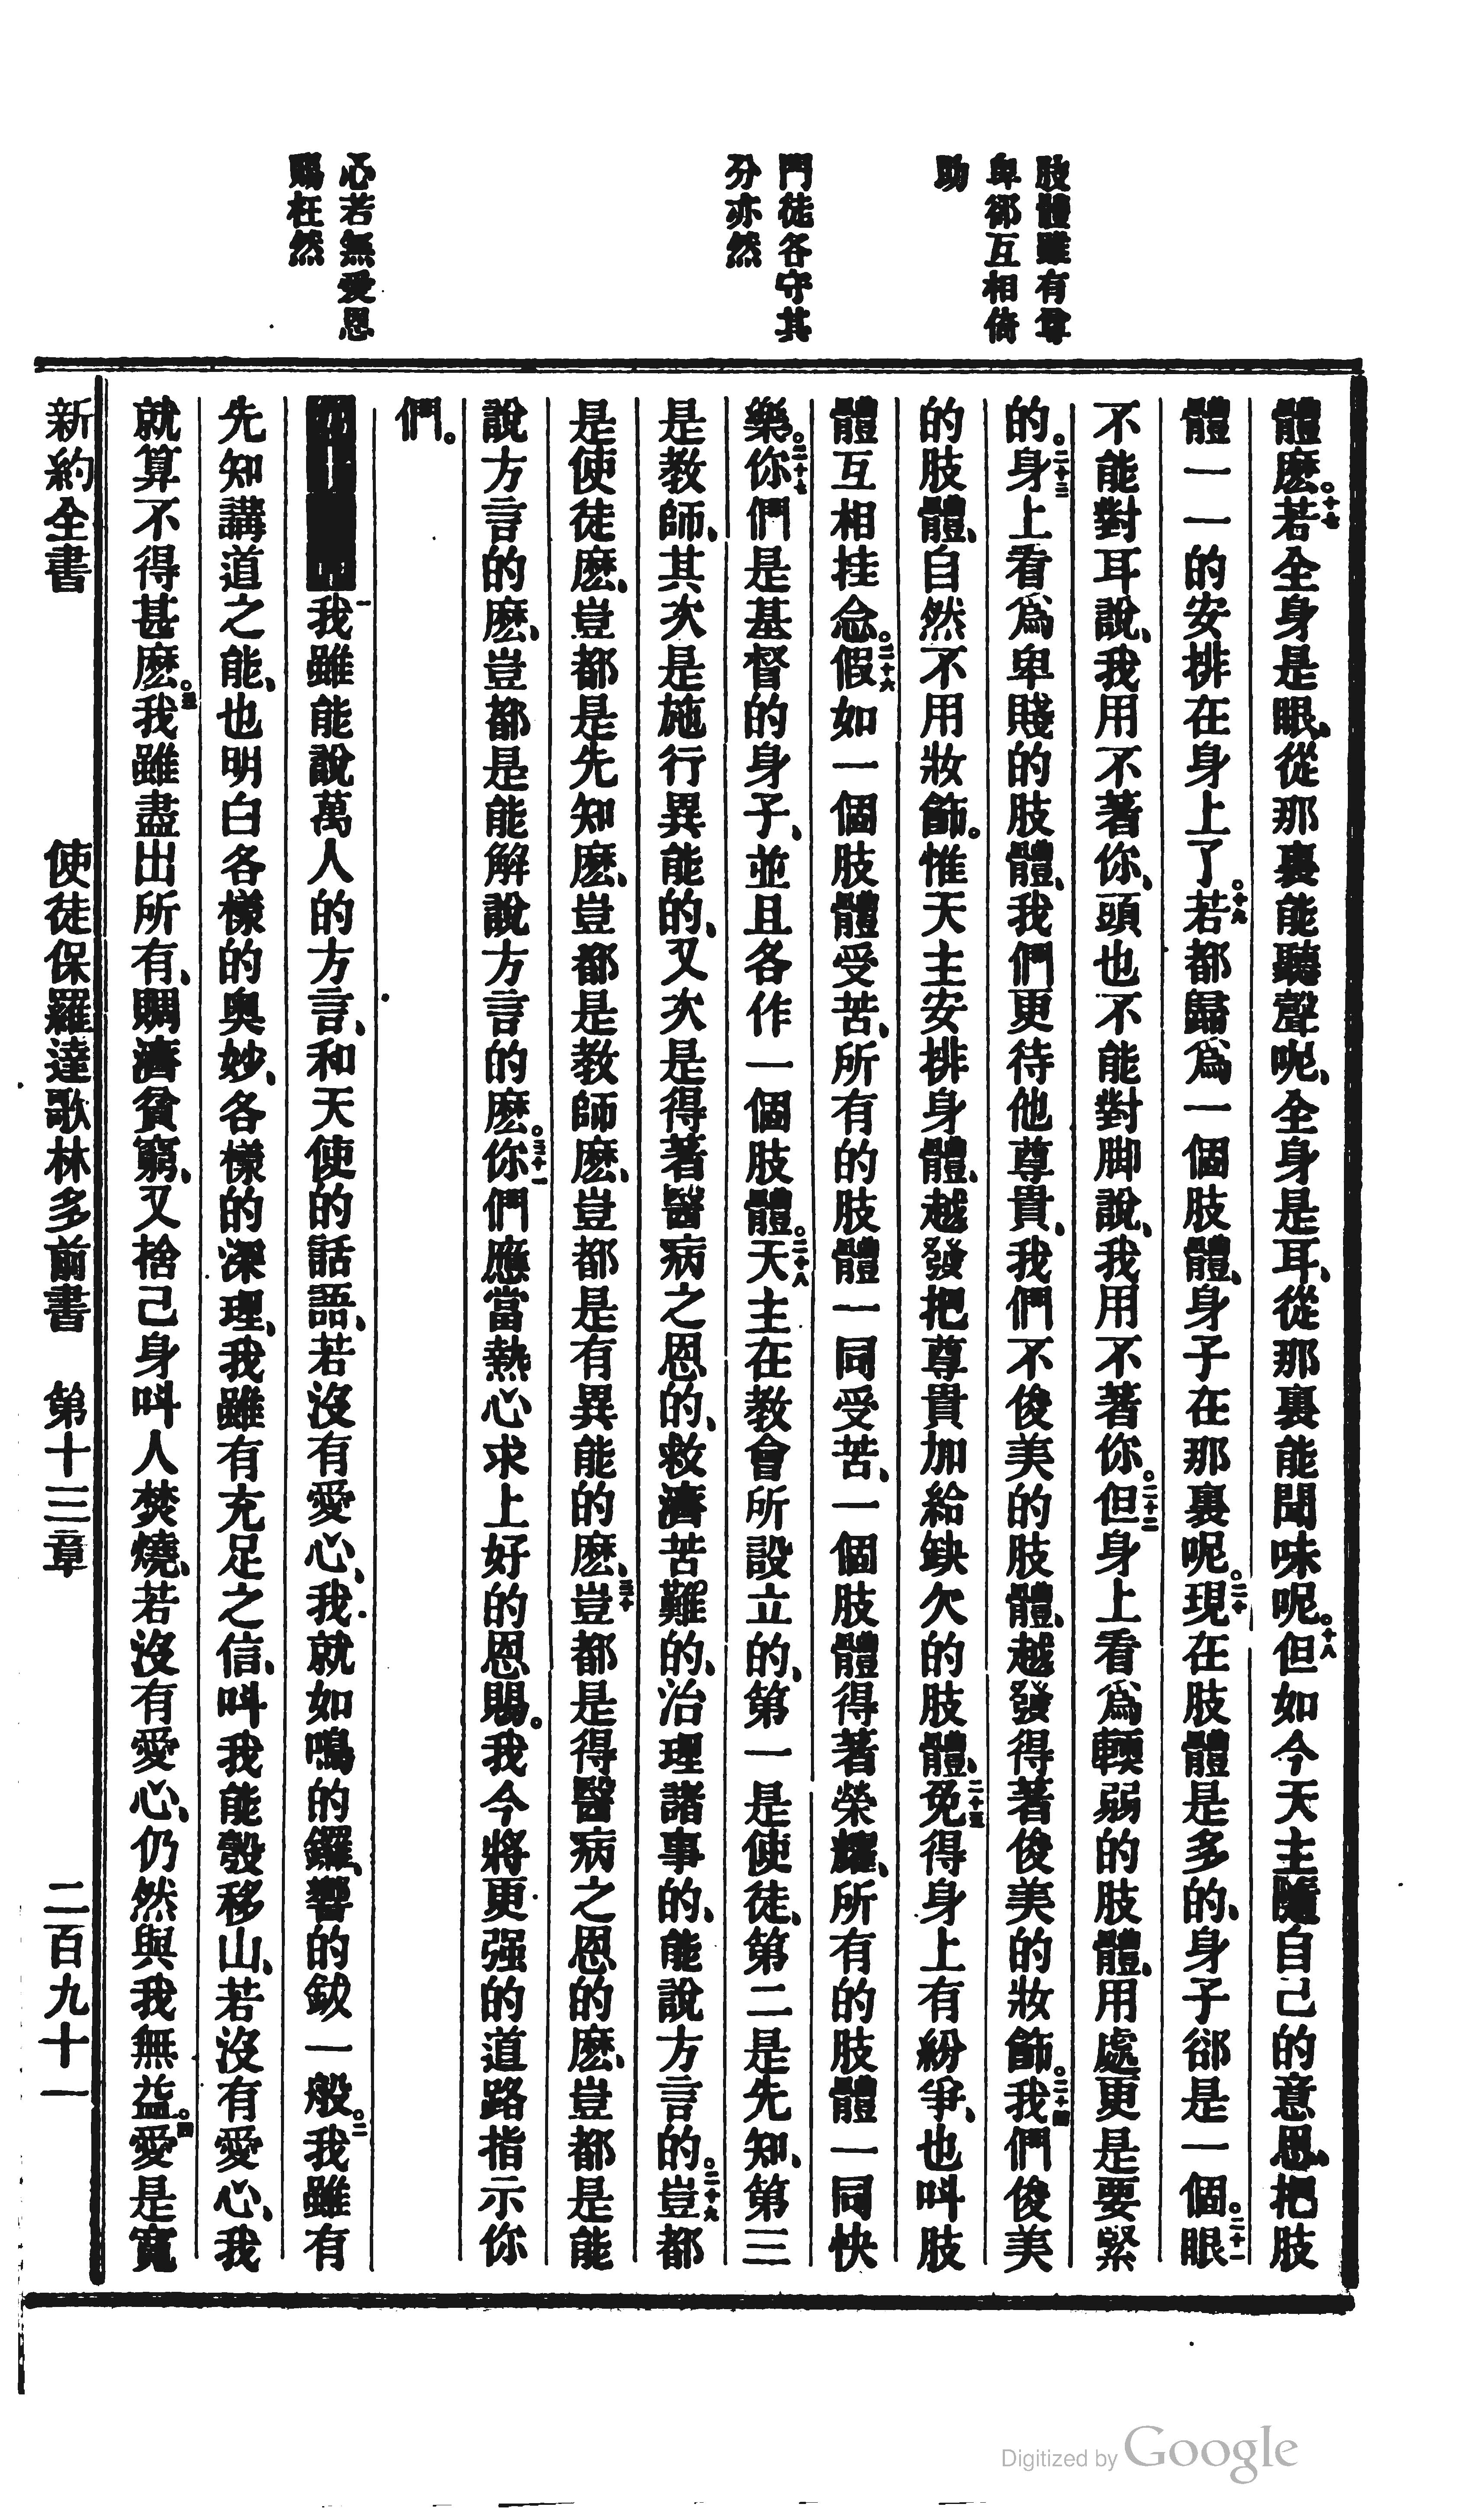 肢體雖有尊
卑郤互相倚
助
門徒各守其
分亦然
心若無愛恩
賜枉然
體麽。十七若全身是眼、從那裏能聽聲呢、全身是耳、從那裏能聞味呢。十八但如今天主隨自己的意思、把肢
體一一的安排在身上了。十九若都歸爲一個肢體、身子在那裏呢。二十現在肢體是多的、身子郤是一個。二十一眼
不能對耳說、我用不著你、頭也不能對脚說、我用不著你。二十二但身上看爲輭弱的肢體、用處更是要緊
的。二十三身上看爲卑賤的肢體、我們更待他尊貴、我們不俊美的肢體、越發得著俊美的妝飾。二十四我們俊美
的肢體、自然不用妝飾。惟天主安排身體、越發把尊貴加給缺欠的肢體、二十五免得身上有紛爭、也呌肢
體互相挂念。二十六假如一個肢體受苦、所有的肢體一同受苦、一個肢體得著榮耀、所有的肢體一同快
樂。二十七你們是基督的身子、並且各作一個肢體。二十八天主在教會所設立的、第一是使徒、第二是先知、第三
是教師、其次是施行異能的、又次是得著醫病之恩的、救濟苦難的、治理諸事的、能說方言的。二十九豈都
是使徒麽、豈都是先知麽、豈都是教師麽、豈都是有異能的麽、三十豈都是得醫病之恩的麽、豈都是能
說方言的麽、豈都是能解說方言的麽。三十一你們應當熱心求上好的恩賜。我今將更强的道路指示你
們。
一我雖能說萬人的方言、和天使的話語、若沒有愛心、我就如鳴的鑼、響的鈸一般。二我雖有
先知講道之能、也明白各樣的奥妙、各樣的深理、我雖有充足之信、呌我能彀移山、若沒有愛心、我
就算不得甚麽。三我雖盡出所有、賙濟貧窮、又捨己身呌人焚燒、若沒有愛心、仍然與我無益。四愛是寬
新約全書 使徒保羅達歌林多前書 第十三章 二百九十一
Digitized by Google